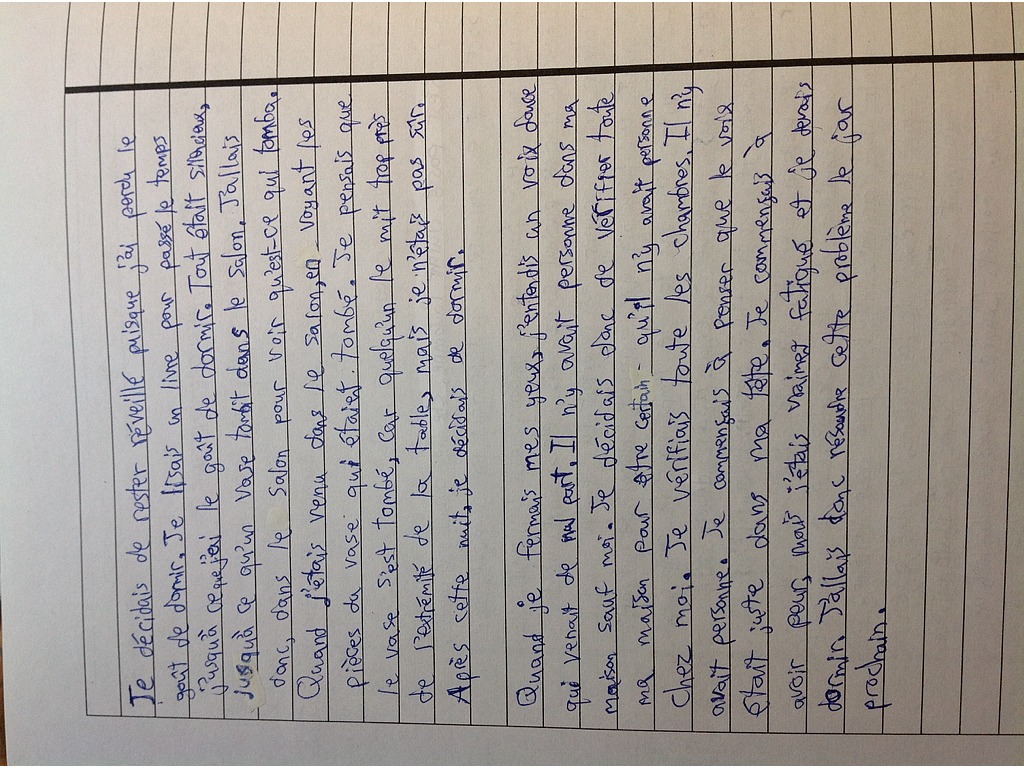 Je décidais de rester réveillé puisque j'ai perdu le
goût de dormir. Je lisais un livre pour passé le temps
jusqu'à ce que j'ai le goût de dormir. Tout était silencieux,
jusqu'à ce qu'un vase tombit dans le salon. J'allais
donc, dans le salon pour voir qu'est-ce qui tomba.
Quand j'étais venu dans le salon, en voyant les
pièces du vase qui étaient tombé. Je pensais que
le vase s'est tombé, car quelqu'un le mit trop près
de l'extrémité de la table, mais je n'étais pas sûr.
Après cette nuit, je décidais de dormir.
Quand je fermais mes yeux, j'entendis un voix douce
qui venait de nul part. Il n'y avait personne dans ma
maison sauf moi. Je décidais donc de vérifier toute
ma maison pour être certain qu'il n'y avait personne
chez moi. Je vérifiais toute les chambres. Il n'y
avait personne. Je commençais à penser que le voix
était juste dans ma tête. Je commençais à
avoir peur, mais j'étais vraimet fatigué et je devais
dormir. J'allais donc résoudre cette problème le jour
prochain.